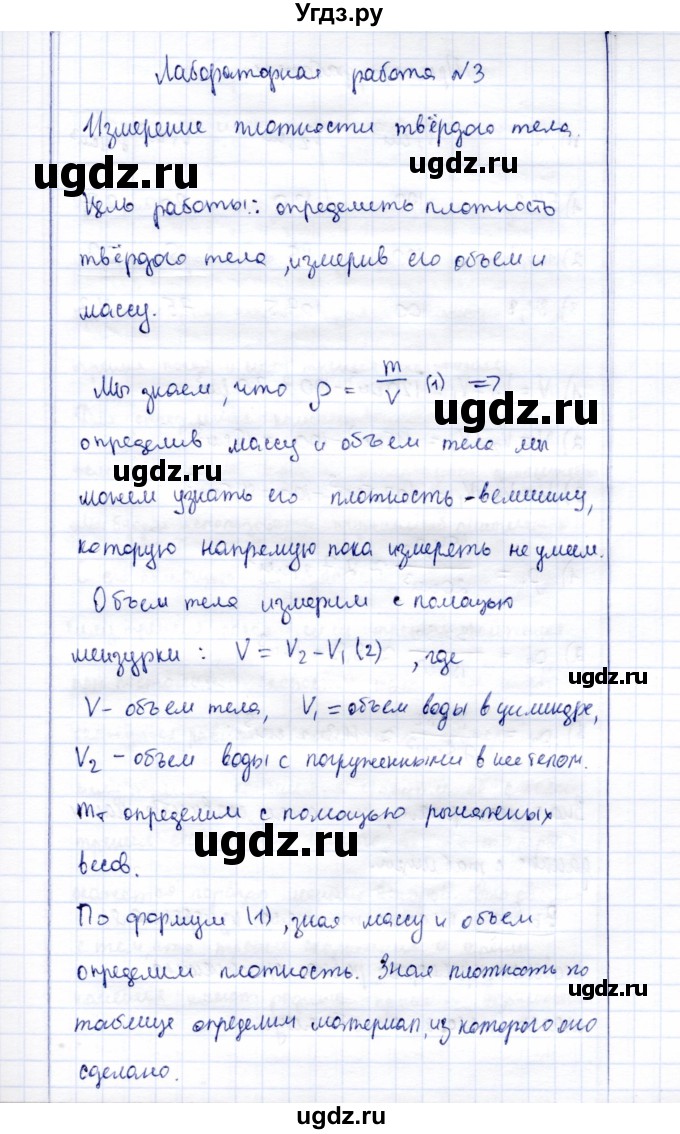 Угдз.ру
Лабораторная работа №3
Измерение плотности твёрдого тела.
ugdz.ru
ugdz.ru
Цель работы: определить плотность
твёрдого тела, измерив его объем и
массу.
Мы знаем, что ρ = m/V (1) =>
ugdz.ru
определив массу и объем тела мы
ugdz.ru
можем узнать его плотность - величину,
которую напрямую пока измерять не умеем.
Объем тела измерим с помощью
мензурки: V = V₂ - V₁ (2), где
ugdz.ru
V - объем тела, V₁ = объем воды в цилиндре,
V₂ - объем воды с погруженными в нее телом.
mт определим с помощью рычажных
ugdz.ru
весов.
По формуле (1), зная массу и объем
определим плотность. Зная плотность по
ugdz.ru
таблице определим материал, из которого оно
сделано.
ugdz.ru